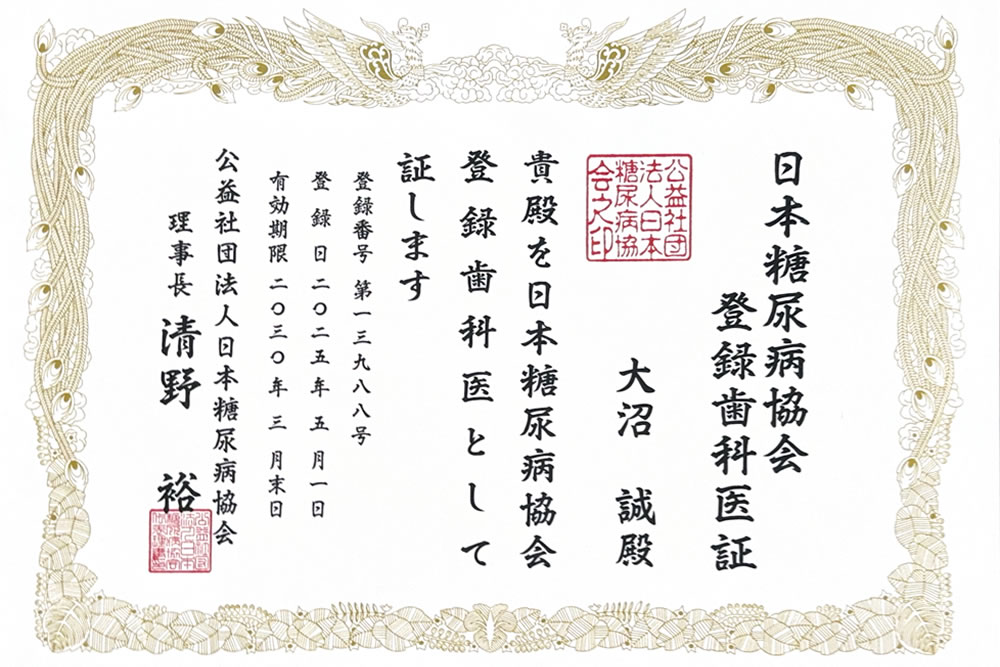 日本糖尿病協会
登録歯科医証
公益社団
法人日本
糖尿病協
会之印
大沼 誠殿
貴殿を日本糖尿病協会
登録歯科医として
証します
登録番号 第一三九八八号
登録日 二〇二五年 五月一日
有効期限 二〇三〇年 三月末日
公益社団法人日本糖尿病協会
理事長 清野 裕